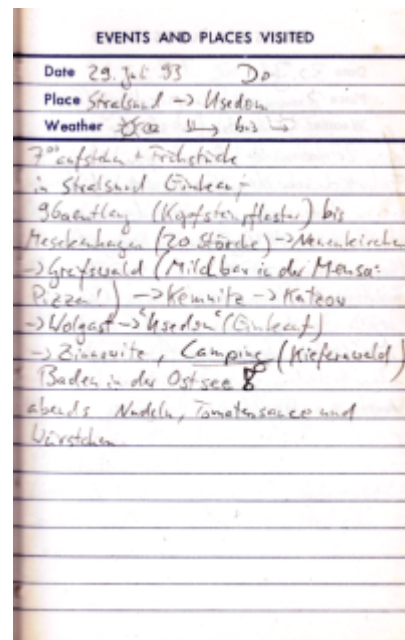 EVENTS AND PLACES VISITED
Date 29. Juli 93 Do
Place Stralsund -> Usedom
Weather bis
7°° aufstehen + Frühstück
in Stralsund Einkauf
96a entlang (Kopfsteinpflaster) bis
Mesekenhagen (20 Störche) -> Neuenkirchen
-> Greifswald (Milchbar in der Mensa:
Pizza!) -> Kemnitz -> Katzow
-> Wolgast -> "Usedom" (Einkauf)
-> Zinnowitz, Camping (Kiefernwald)
Baden in der Ostsee
abends Nudeln, Tomatensauce und
Würstchen.